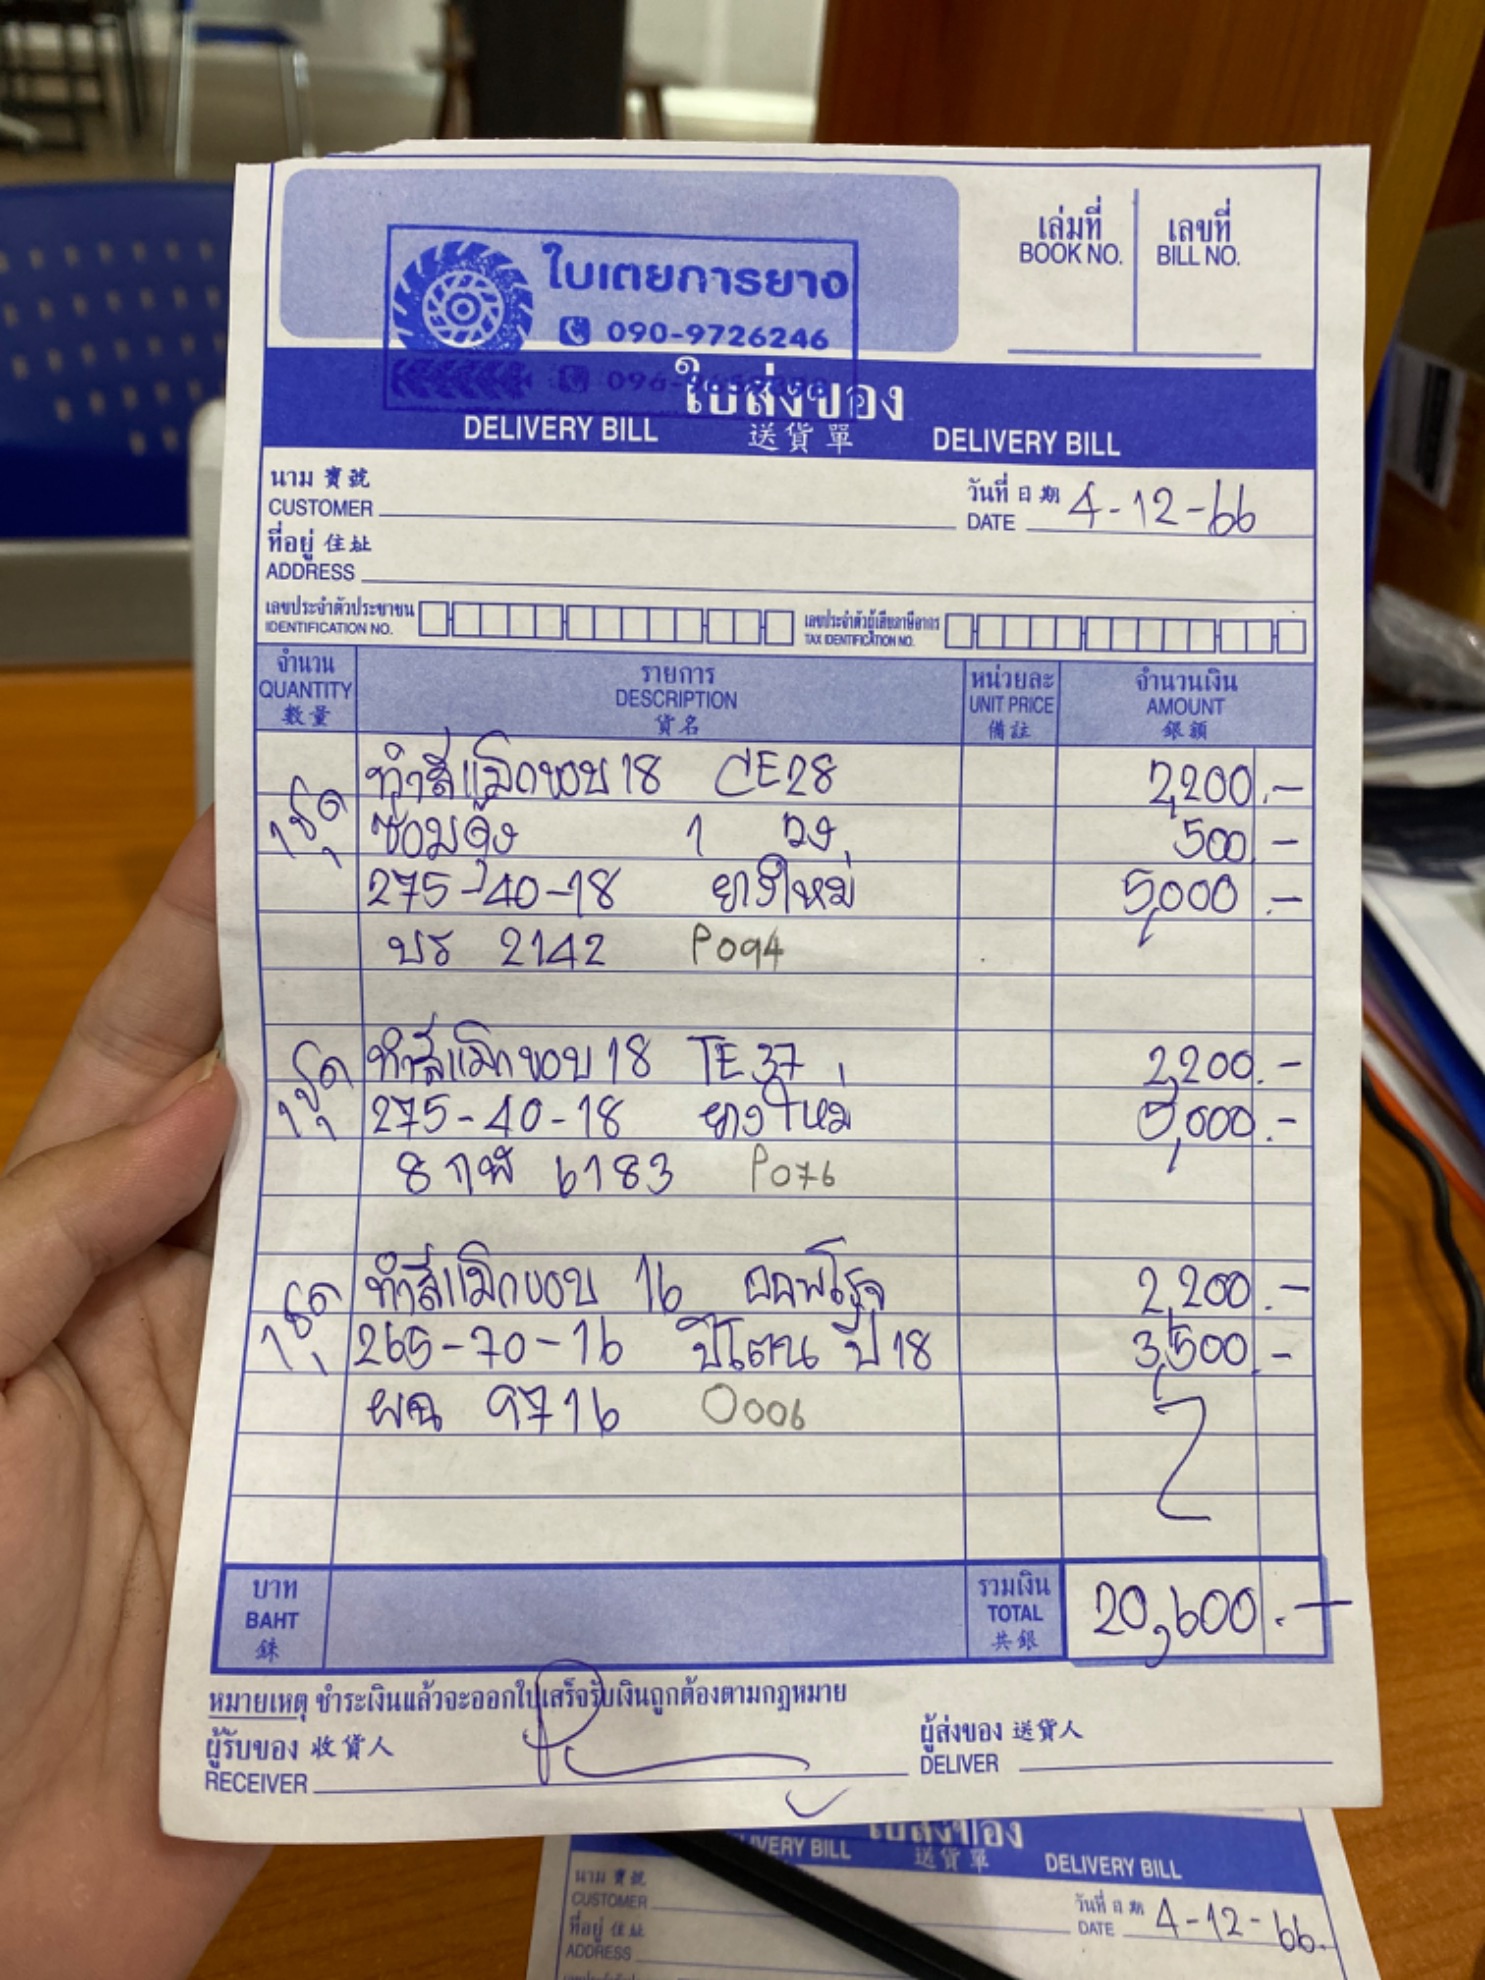 เล่มที่ เลขที่
BOOK NO. BILL NO.
ใบเตยการยาง
090-9726246
096-
ใบส่งของ
DELIVERY BILL 送貨單 DELIVERY BILL
นาม 寶號 วันที่ 日期 4-12-66
CUSTOMER DATE
ที่อยู่ 住址
ADDRESS
เลขประจำตัวประชาชน เลขประจำตัวผู้เสียภาษีอากร
IDENTIFICATION NO. TAX IDENTIFICATION NO.
จำนวน รายการ หน่วยละ จำนวนเงิน
QUANTITY DESCRIPTION UNIT PRICE AMOUNT
數量 貨名 備註 銀額
ทำสีแม็กขอบ 18 CE28 2,200.-
1 ชุด ซ่อมดุ้ง 1 วง 500.-
275-40-18 ยางใหม่ 5,000.-
บร 2142 P094
1 ชุด ทำสีแม็กขอบ 18 TE37 2,200.-
275-40-18 ยางใหม่ 5,000.-
8กฬ 6183 P076
1 ชุด ทำสีแม็กขอบ 16 ออฟโรจ 2,200.-
265-70-16 ปีโตน ปี 18 3,500.-
ผฉ 9716 O006
บาท รวมเงิน 20,600.-
BAHT TOTAL
銖 共銀
หมายเหตุ ชำระเงินแล้วจะออกใบเสร็จรับเงินถูกต้องตามกฎหมาย
ผู้รับของ 收貨人 ผู้ส่งของ 送貨人
RECEIVER DELIVER
ใบส่งของ
DELIVERY BILL 送貨單 DELIVERY BILL
นาม 寶號 วันที่ 日期 4-12-66.
CUSTOMER DATE
ที่อยู่ 住址
ADDRESS